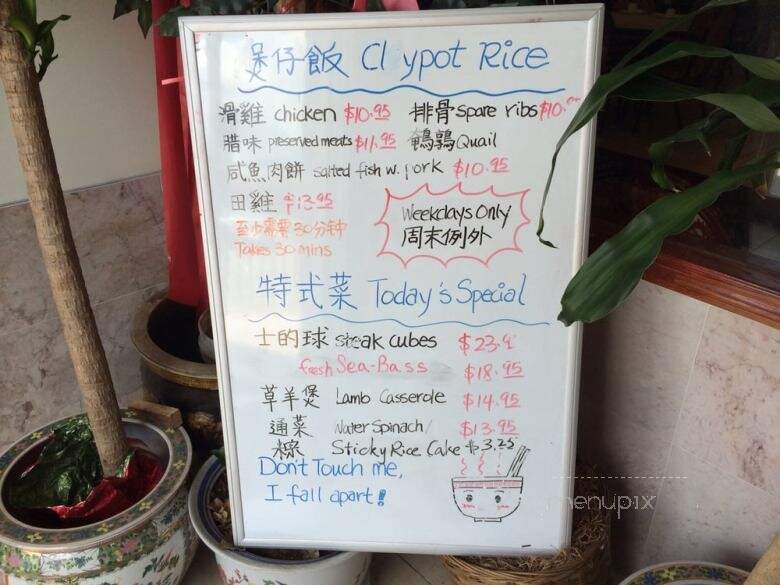 煲仔飯 Cl ypot Rice
滑雞 chicken $10.95 排骨 spare ribs $10.
腊味 preserved meats $11.95 鵪鶉 Quail
咸魚肉餅 salted fish w. pork $10.95
田雞 $13.95
至少需要30分钟
Takes 30 mins
Weekdays Only
周末例外
特式菜 Today's Special
士的球 steak cubes $23.9
fresh Sea-Bass $18.95
草羊煲 Lamb Casserole $14.95
通菜 Water Spinach/ $13.95
粽 Sticky Rice Cake $3.25
Don't Touch me,
I fall apart!
menupix